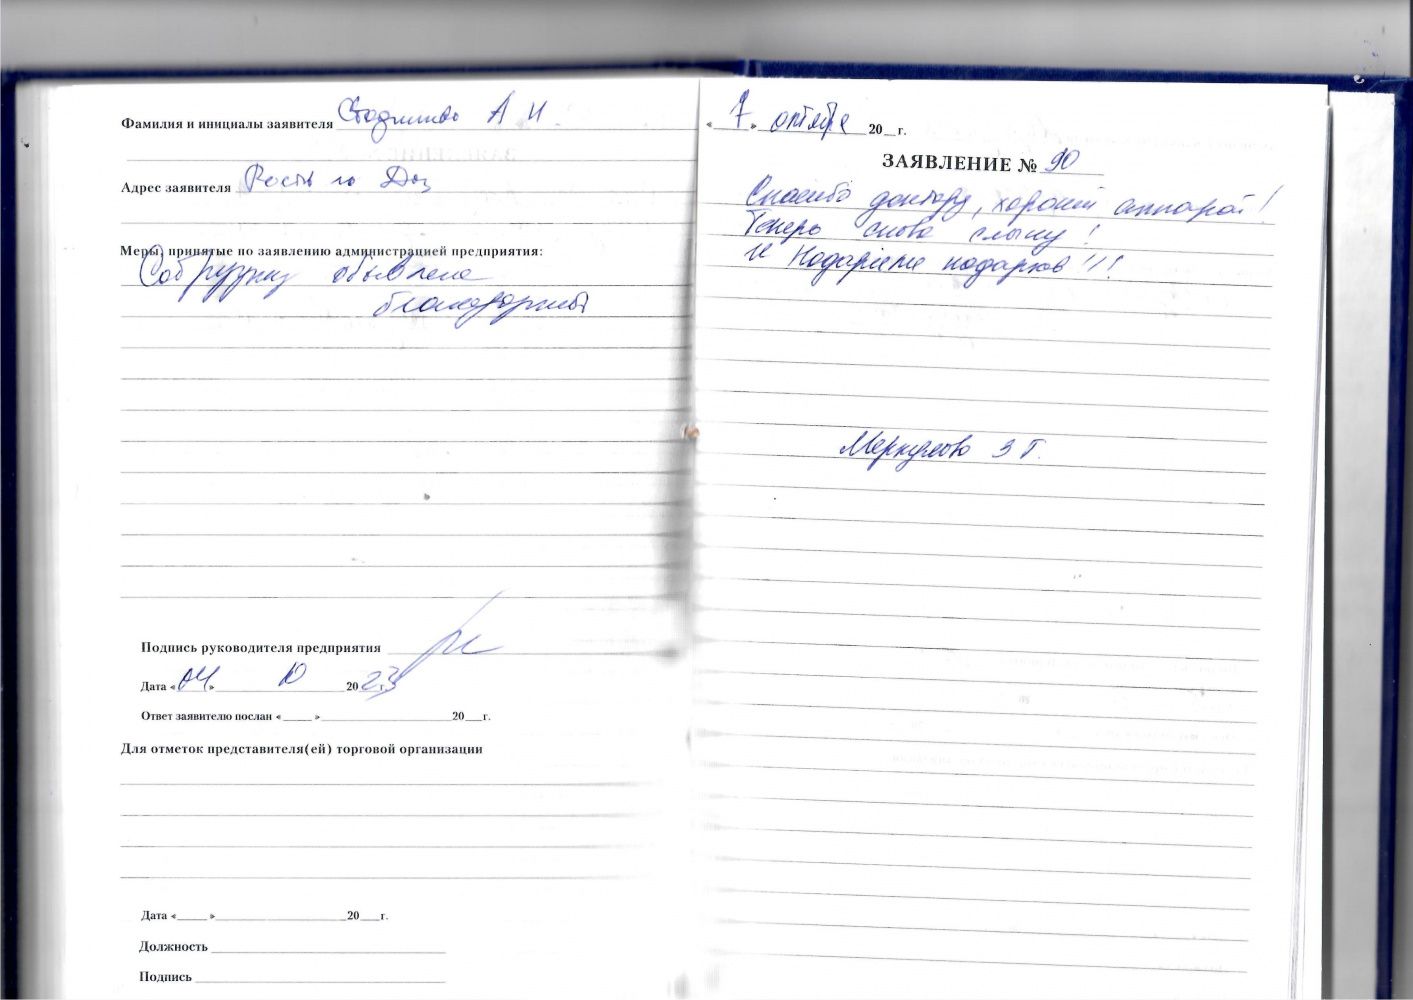 Фамилия и инициалы заявителя А И.
Адрес заявителя
Меры, принятые по заявлению администрацией предприятия:
объявлена
Подпись руководителя предприятия
Дата «04» 10 2023 г.
Ответ заявителю послан «     »      20   г.
Для отметок представителя(ей) торговой организации
Дата «     »      20   г.
Должность
Подпись
«7» октября 20   г.
ЗАЯВЛЕНИЕ № 90
Спасибо доктору, хороший аппарат!
Теперь снова слышу!
и подарков!!!
Меркулова З Г.